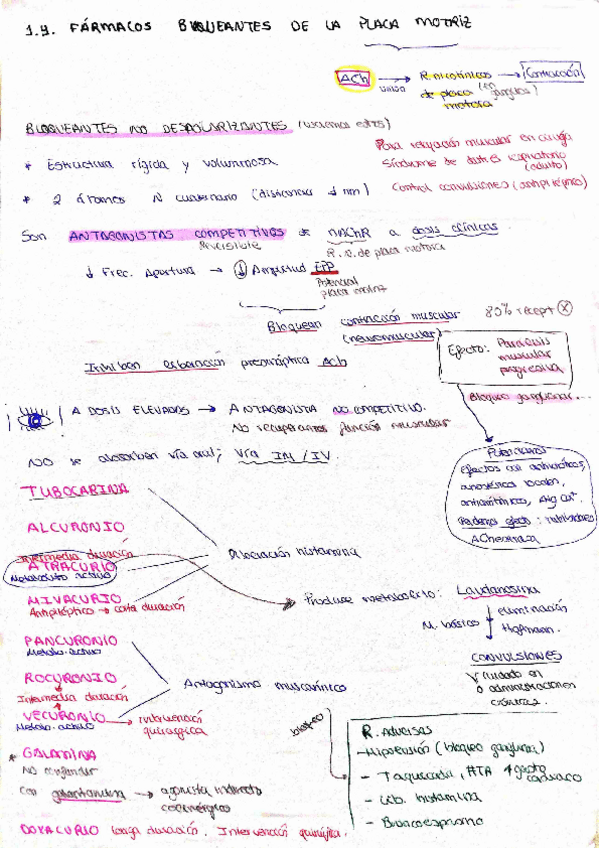 1.4. FÁRMACOS BLOQUEANTES DE LA PLACA MOTRIZ
ACh → R. nicotínicos → Contracción
unión de placa (en ganglios)
motora
BLOQUEANTES NO DESPOLARIZANTES (usaremos estos)
Para relajación muscular en cirugía
* Estructura rígida y voluminosa
Síndrome de distrés respiratorio
(adulto)
* 2 átomos N cuaternario (distancias ↓ nm)
Control convulsiones (antiepilépticos)
Son ANTAGONISTAS COMPETITIVOS de nAChR a dosis clínicas.
Reversible
R. n. de placa motora
↓ Frec. Apertura → ↓ Amplitud EPP
Potencial
placa motriz
Bloquean contracción muscular
(neuromuscular)
80% recept
Efecto: Parálisis
muscular
progresiva
Inhiben liberación presináptica ACh
Bloqueo ganglionar...
A DOSIS ELEVADAS → ANTAGONISTA NO COMPETITIVO.
No recuperamos función muscular
NO se absorben vía oral; Vía IM / IV.
Potenciadores
efectos con
anestésicos locales,
antiarrítmicos,
efecto: inhibidores
AChesterasa
TUBOCARINA
ALCURONIO
Intermedia duración
ATRACURIO
Metabolito activo
Liberación histamina
MIVACURIO
Antiepiléptico → corta duración
Produce metabolito: Laudanosina
M. básico
eliminación
Hoffmann.
PANCURONIO
Metabo. activo
CONVULSIONES
cuidado en
administraciones
crónicas.
ROCURONIO
Intermedia duración
Antagonismo muscarínico
VECURONIO → intervención
Metabo. activo
quirúrgica
bloqueo
R. Adversas
- Hipotensión (bloqueo ganglionar)
- Taquicardia, HTA, ↑ gasto
cardiaco
- Lib. histamina
- Broncoespasmo
* GALAMINA
No confundir
con galantamina → agonista indirecto
colinérgicos
DOXACURIO larga duración. Intervención quirúrgica.